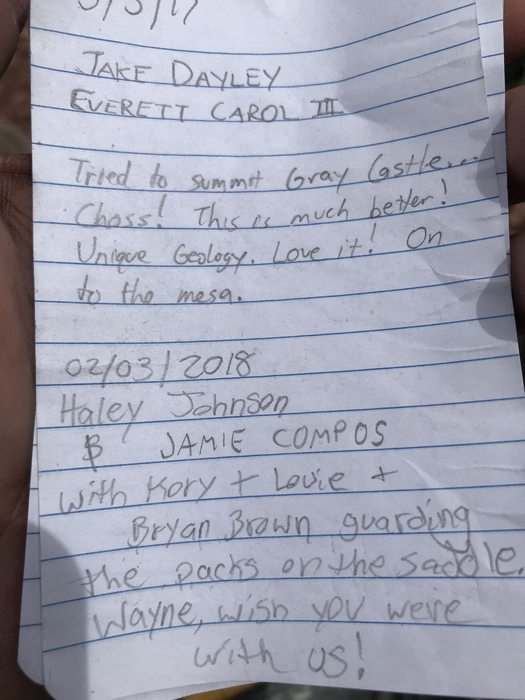 JAKE DAYLEY
EVERETT CAROL III
Tried to summit Gray Castle...
Choss! This is much better!
Unique Geology. Love it! On
to the mesa.
02/03/2018
Haley Johnson
& JAMIE COMPOS
with Kory + Louie +
Bryan Brown guarding
the packs on the saddle.
Wayne, wish you were
with us!